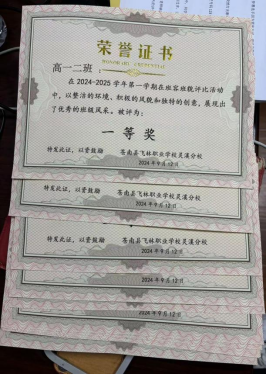 荣誉证书
HONORARY CREDENTIAL
高一二班：
在2024-2025学年第一学期在班容班貌评比活动
中，以整洁的环境、积极的风貌和独特的创意，展现出
了优秀的班级风采，被评为：
一等奖
特发此证，以资鼓励
苍南县飞林职业学校灵溪分校
2024年9月12日
特发此证，以资鼓励
苍南县飞林职业学校灵溪分校
2024年9月12日
特发此证，以资鼓励
苍南县飞林职业学校灵溪分校
2024年9月12日
2024年9月12日
2024年9月12日